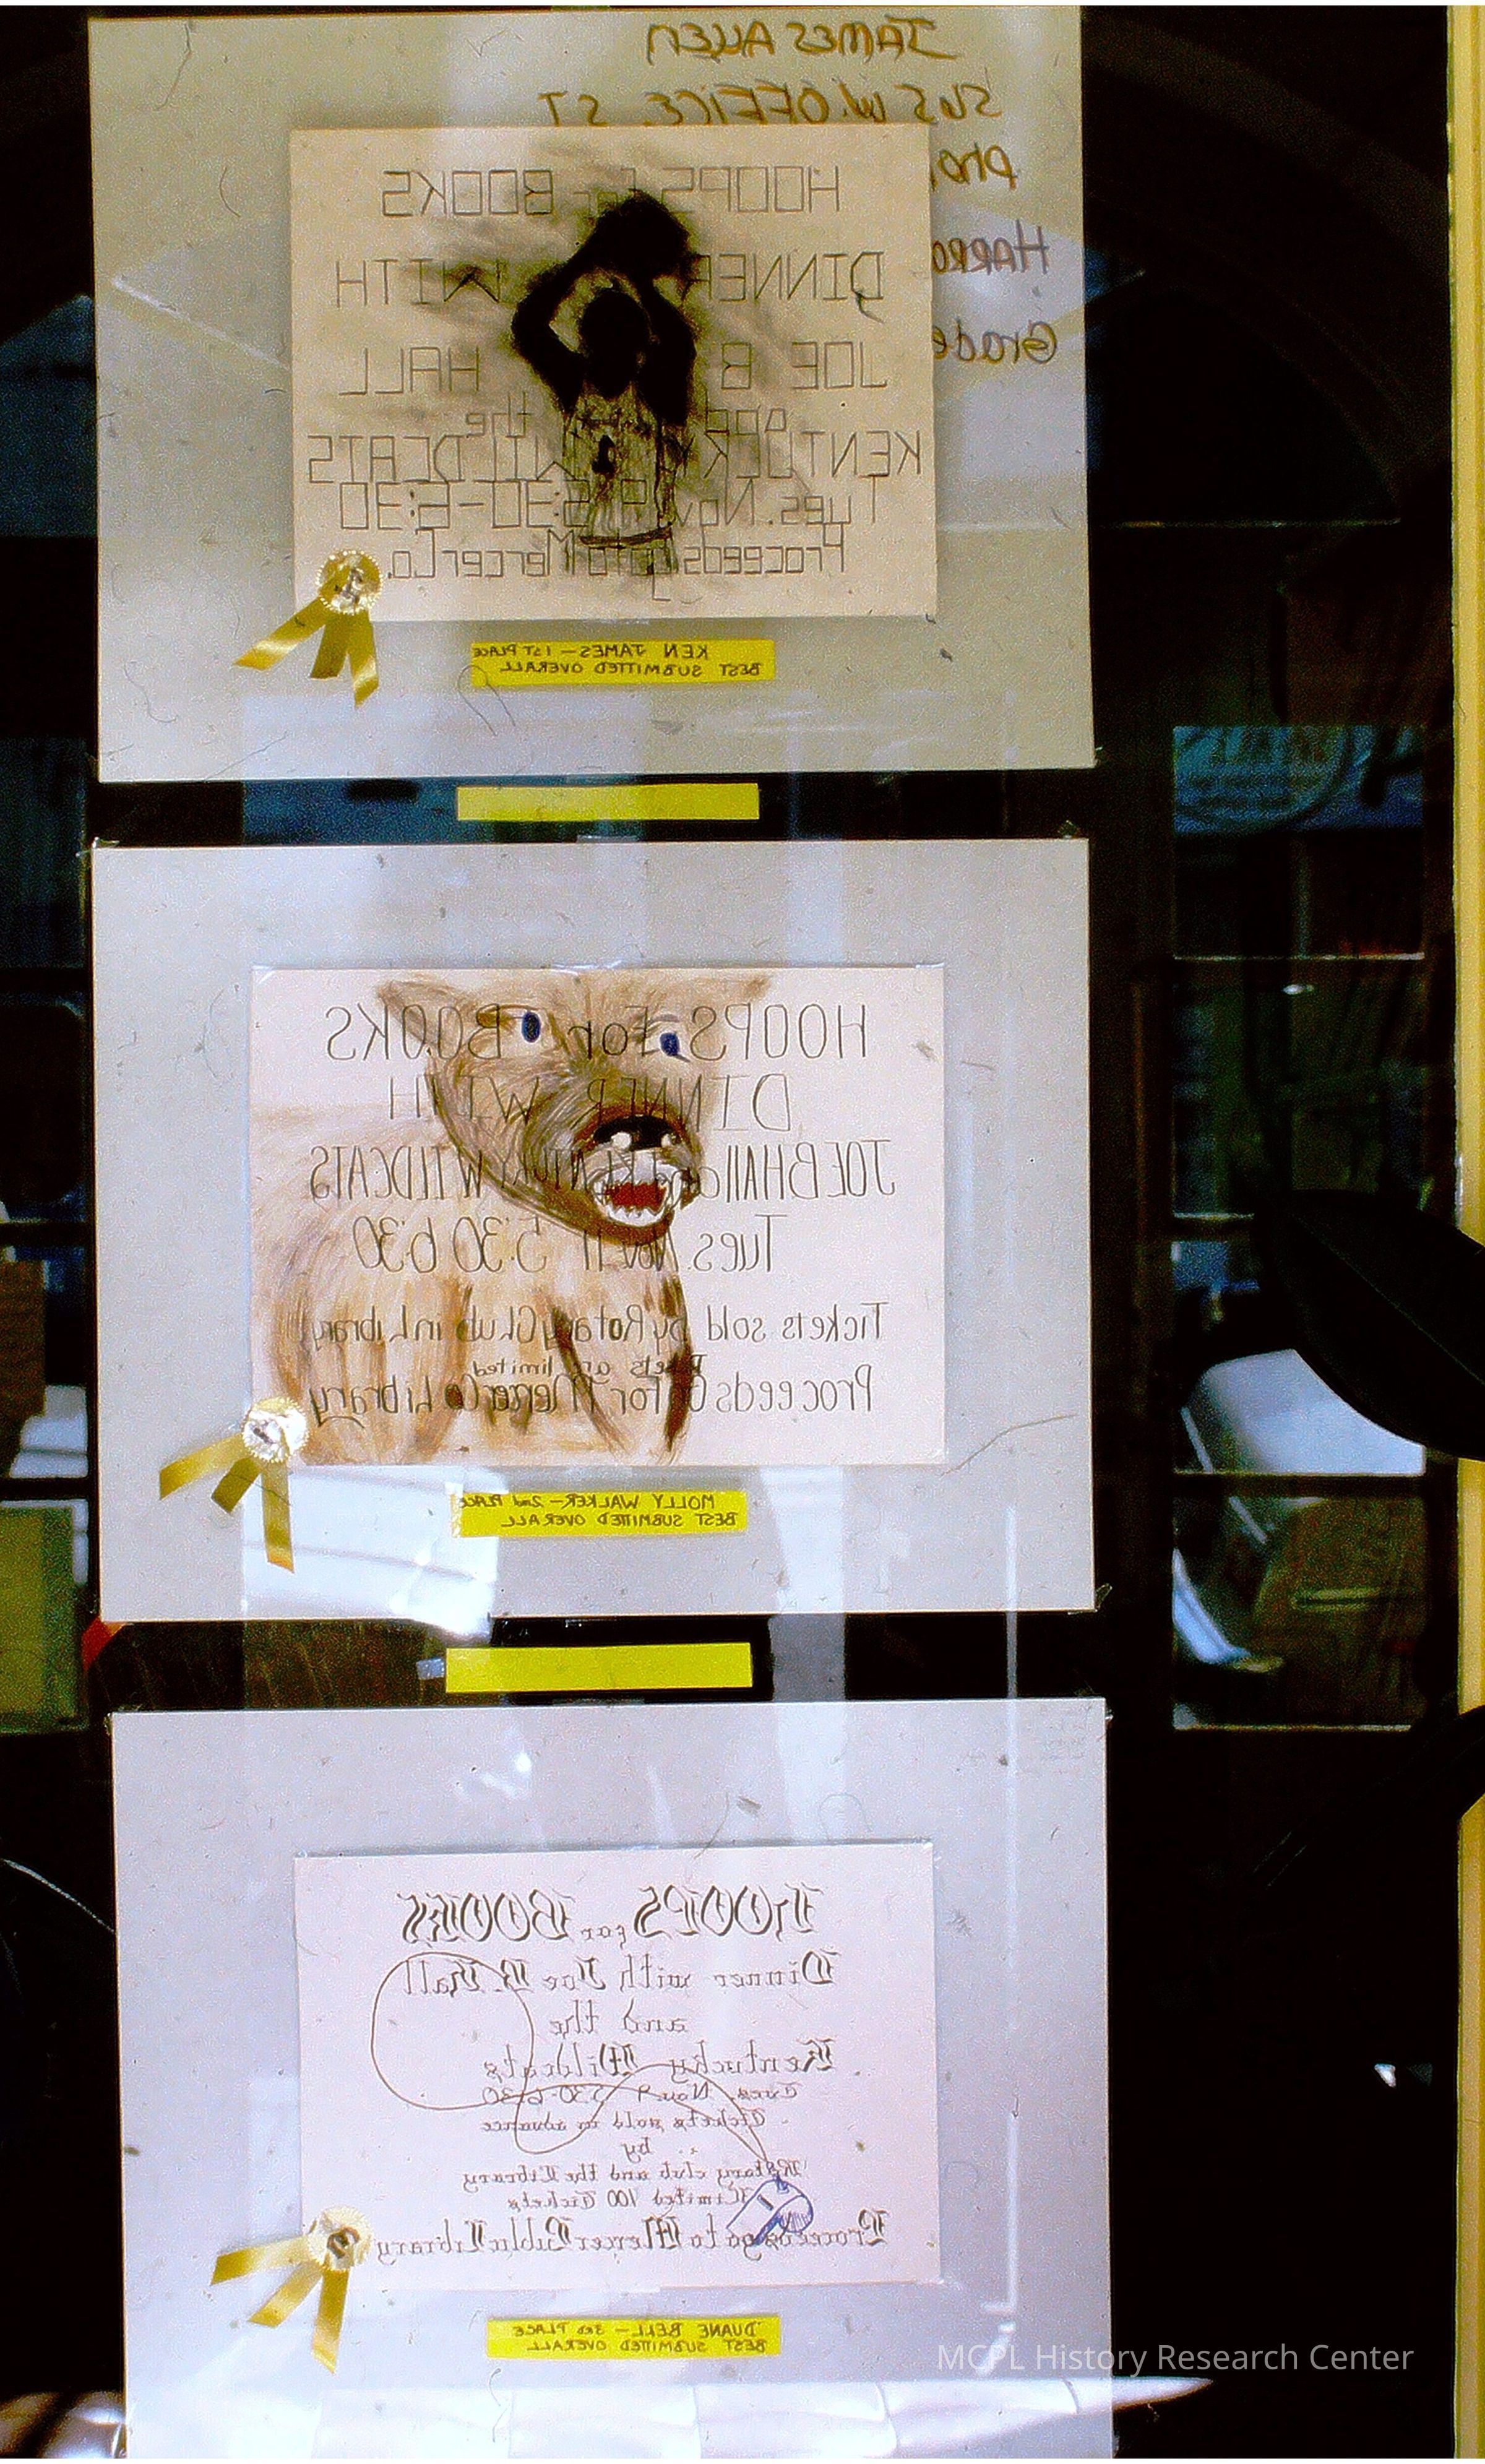 JAMES ALLEN
W. OFFICE ST
Pho.
HARRO
Grade
HOOPS for BOOKS
DINNER WITH
JOE B HALL
and the
KENTUCKY WILDCATS
Tues. Nov. 9 5:30-6:30
Proceeds go to Mercer Co.
KEN JAMES - 1ST PLACE
BEST SUBMITTED OVERALL
HOOPS for BOOKS
DINNER WITH
JOE B HAll and KENTUCKY WILDCATS
Tues. Nov. 5:30 6:30
Tickets sold by Rotary Club in Library
Tickets are limited
Proceeds Go For Mercer Co Library
MOLLY WALKER - 2nd PLACE
BEST SUBMITTED OVERALL
HOOPS for BOOKS
Dinner with Joe B. Hall
and the
Kentucky Wildcats
Tues. Nov 9 5:30-6:30
Tickets sold in advance
by
Rotary club and the Library
Limited 100 Tickets
Proceeds go to Mercer Public Library
DUANE BELL - 3RD PLACE
BEST SUBMITTED OVERALL
MCPL History Research Center